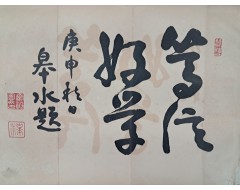 笃信
好学
庚申秋日
皋水題